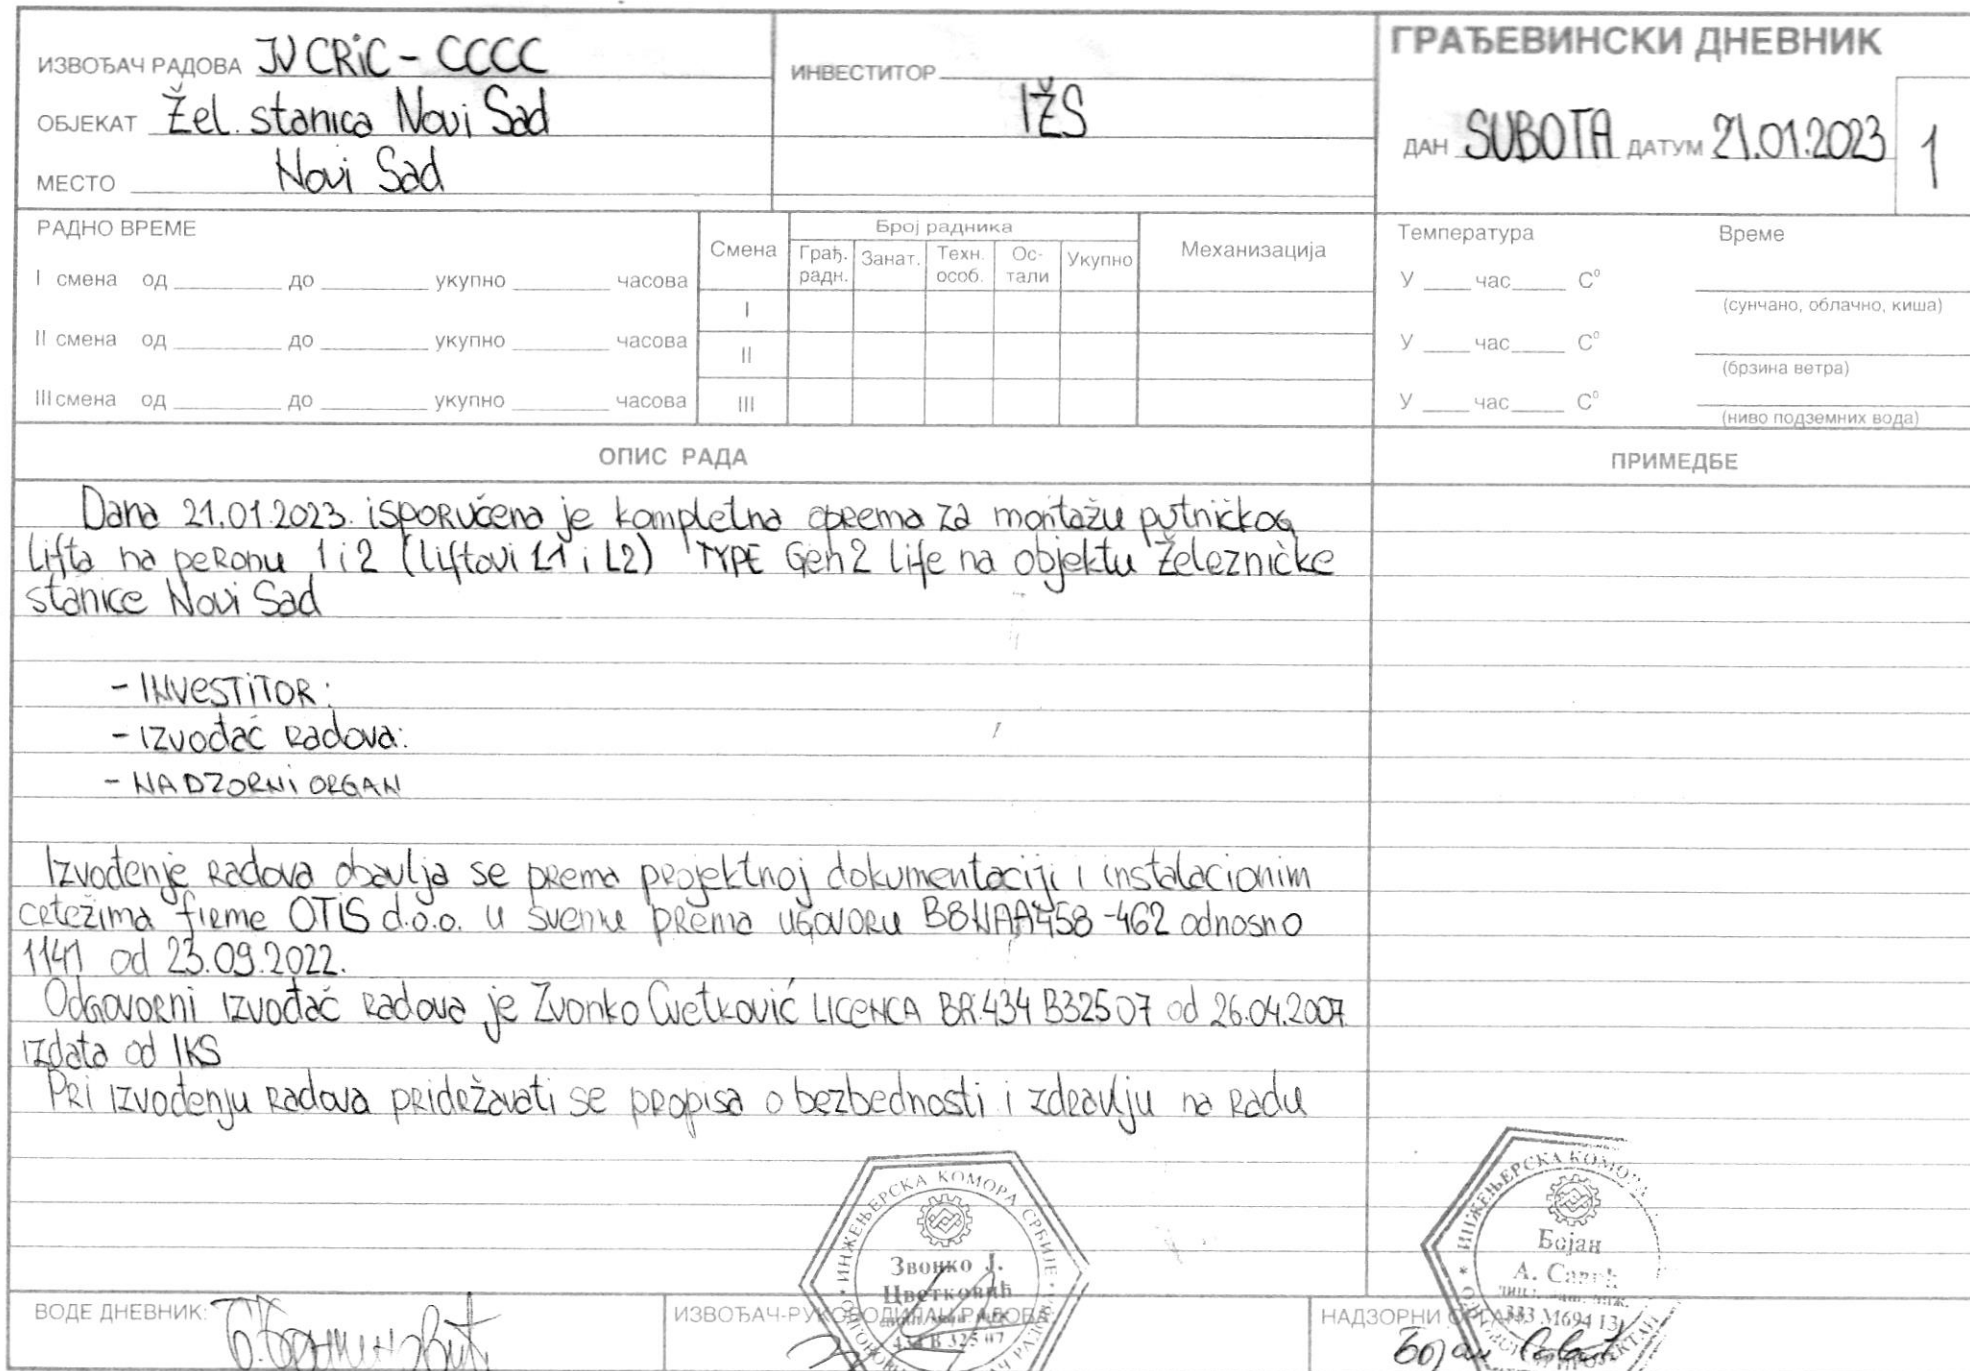 ИЗВОЂАЧ РАДОВА JV CRiC - CCCC
ОБЈЕКАТ Žel. stanica Novi Sad
МЕСТО Novi Sad
ИНВЕСТИТОР
IŽS
ГРАЂЕВИНСКИ ДНЕВНИК
ДАН SUBOTA ДАТУМ 21.01.2023
1
РАДНО ВРЕМЕ
I смена од до укупно часова
II смена од до укупно часова
III смена од до укупно часова
Смена
Број радника
Грађ. радн.
Занат.
Техн. особ.
Ос-
тали
Укупно
Механизација
I
II
III
Температура
Време
У час C°
(сунчано, облачно, киша)
У час C°
(брзина ветра)
У час C°
(ниво подземних вода)
ОПИС РАДА
ПРИМЕДБЕ
Dana 21.01.2023. isporučena je kompletna oprema za montažu putničkog
lifta na peronu 1 i 2 (liftovi L1 i L2) TYPE Gen2 life na objektu Železničke
stanice Novi Sad
- INVESTITOR:
- Izvođač radova:
- NADZORNI ORGAN
Izvođenje radova obavlja se prema projektnoj dokumentaciji i instalacionim
crtežima firme OTIS d.o.o. u svemu prema ugovoru B8NAA458-462 odnosno
1141 od 23.09.2022.
Odgovorni izvođač radova je Zvonko Cvetković LICENCA BR.434 B32507 od 26.04.2007.
izdata od IKS
Pri izvođenju radova pridržavati se propisa o bezbednosti i zdravlju na radu
ИНЖЕЊЕРСКА КОМОРА СРБИЈЕ
Звонко Ј.
Цветковић
434 В 325 07
ИНЖЕЊЕРСКА КОМОРА
Бојан
А.
333 М694 13
ВОДЕ ДНЕВНИК:
ИЗВОЂАЧ-РУКОВОДИЛАЦ РАДОВА:
НАДЗОРНИ ОРГАН:
Бојан